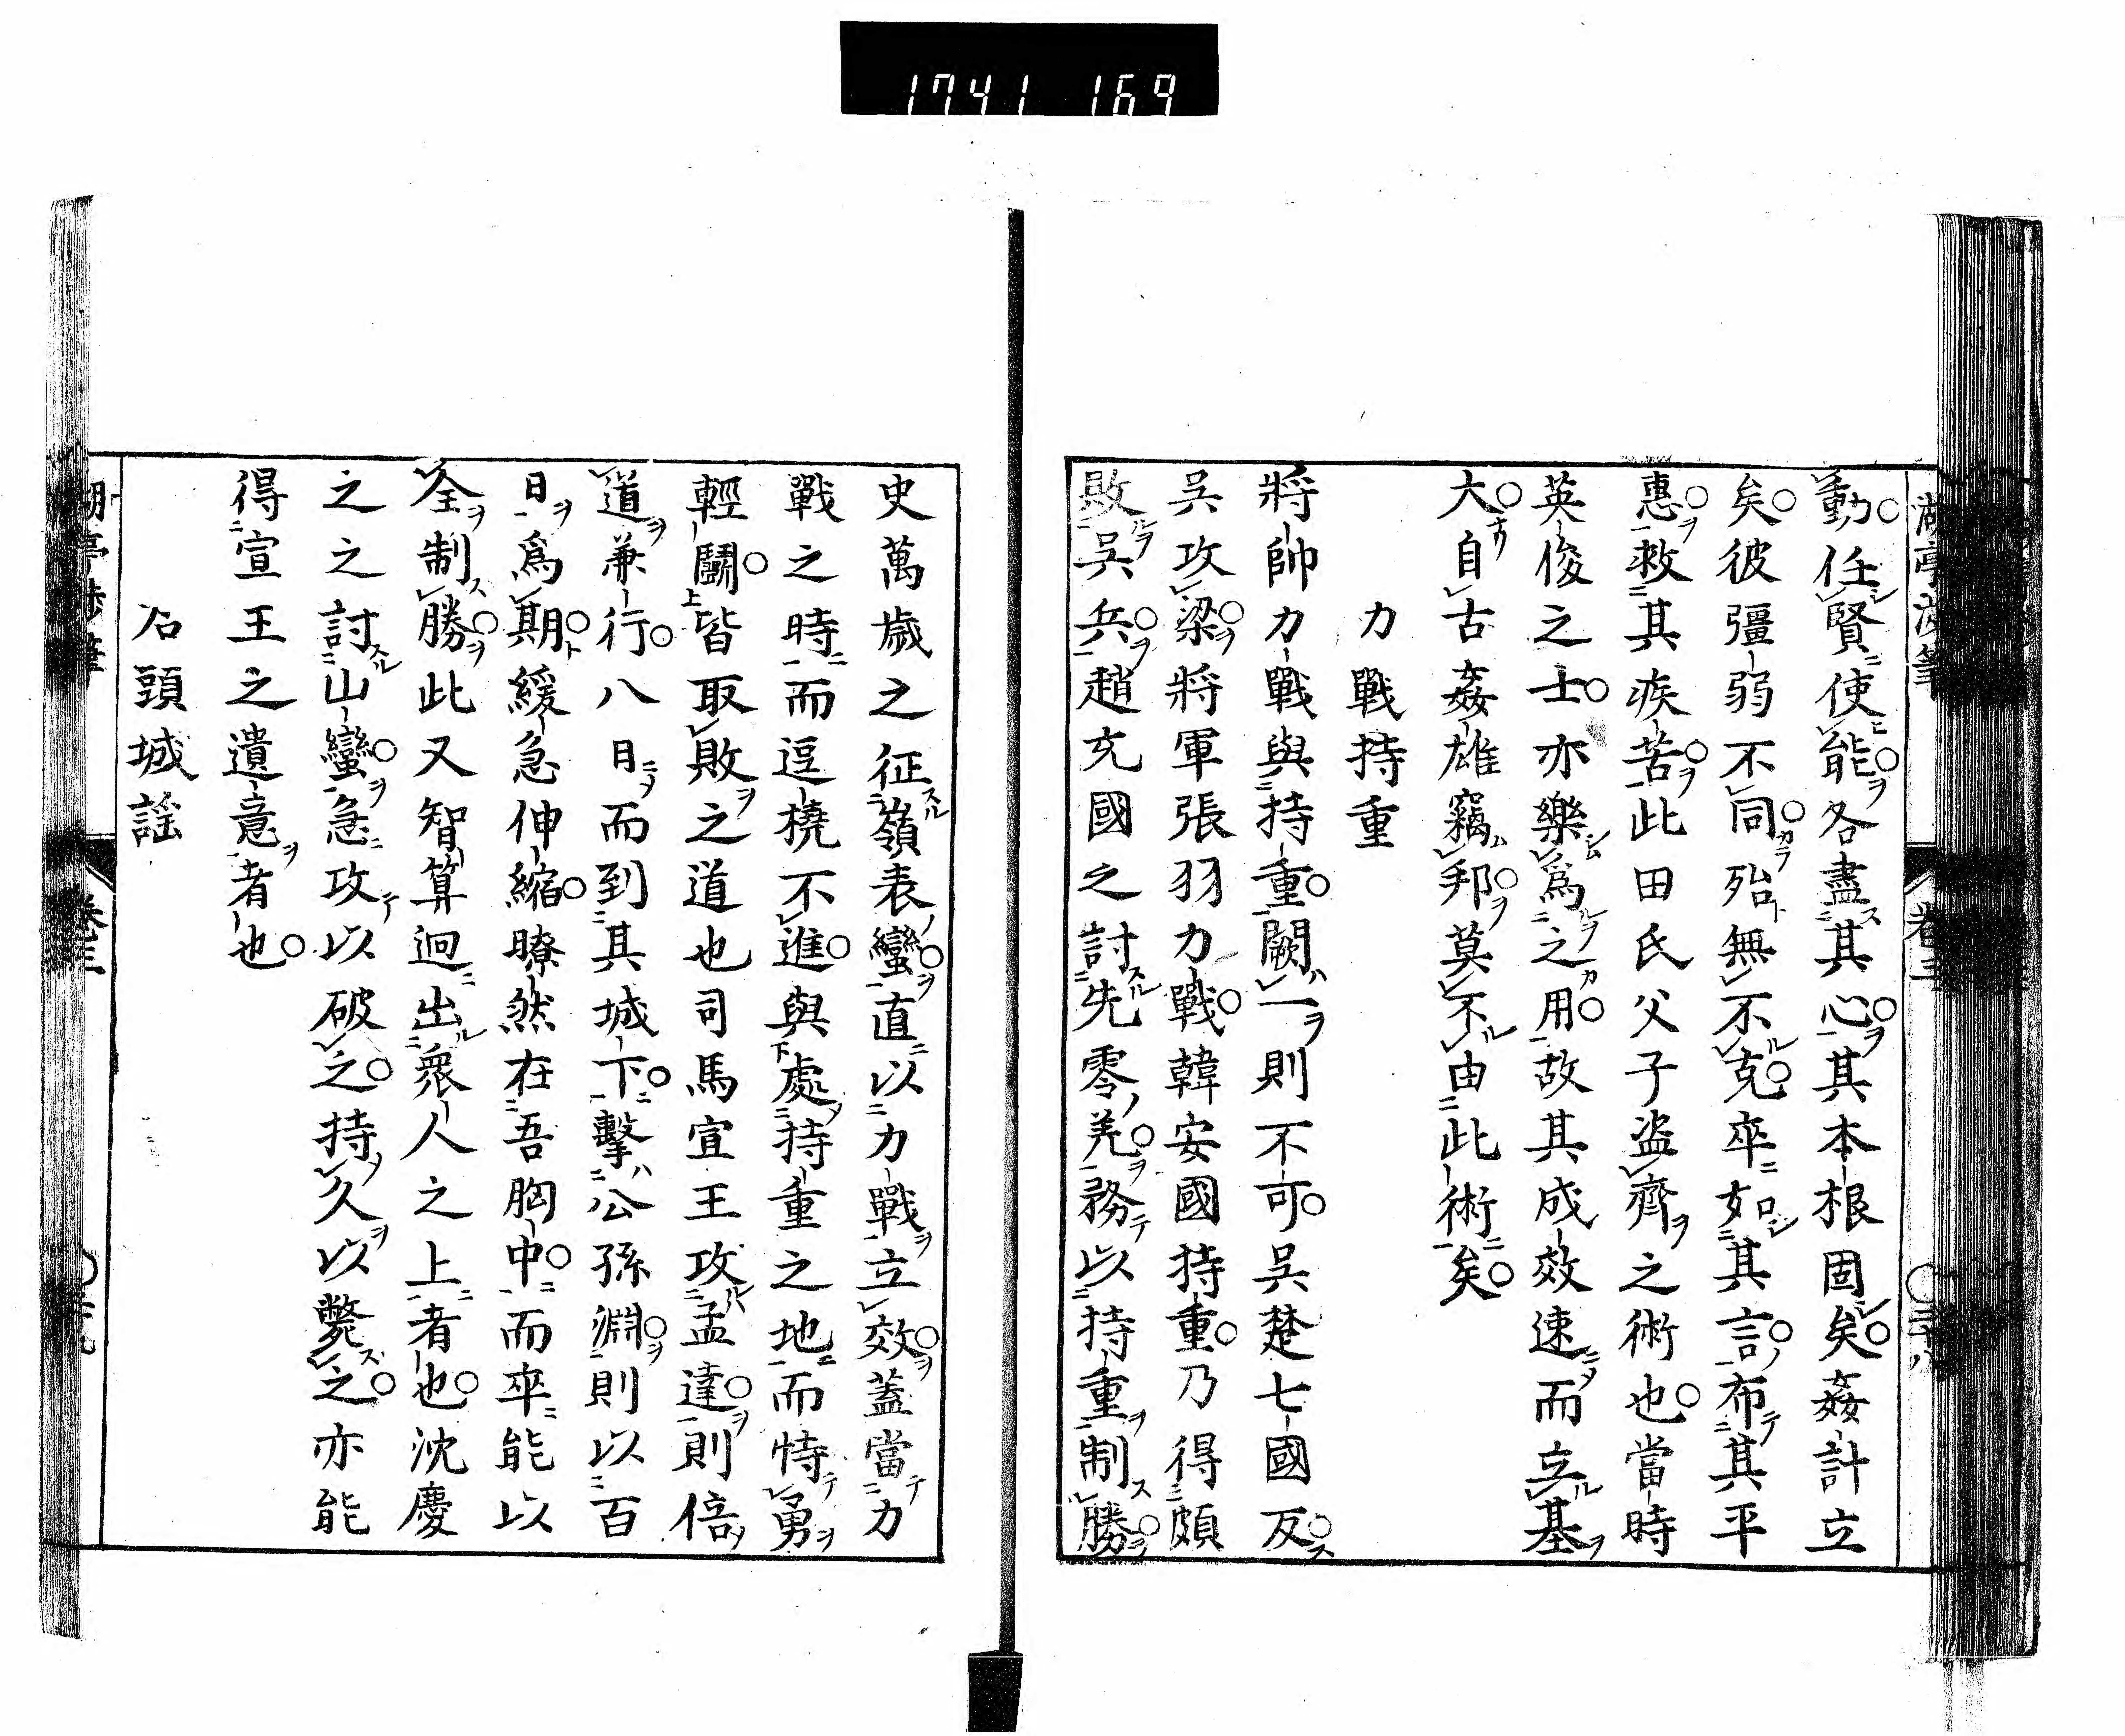 1741 169
動任賢使能各盡其心其本根固矣姦計立
矣彼彊弱不同殆無不克卒如其言布其平
惠救其疾苦此田氏父子盗齊之術也當時
英俊之士亦樂爲之用故其成效速而立基
大自古姦雄竊邦莫不由此術矣
力戰持重
將帥力戰與持重闕一則不可吳楚七國反
吳攻梁將軍張羽力戰韓安國持重乃得頗
敗吳兵趙充國之討先零羌務以持重制勝
史萬歲之征嶺表蠻直以力戰立效蓋當力
戰之時而逗橈不進與處持重之地而恃勇
輕鬭皆取敗之道也司馬宣王攻孟達則倍
道兼行八日而到其城下擊公孫淵則以百
日爲期緩急伸縮瞭然在吾胸中而卒能以
全制勝此又智算迥出衆人之上者也沈慶
之之討山蠻急攻以破之持久以斃之亦能
得宣王之遺意者也
石頭城謡
卷三